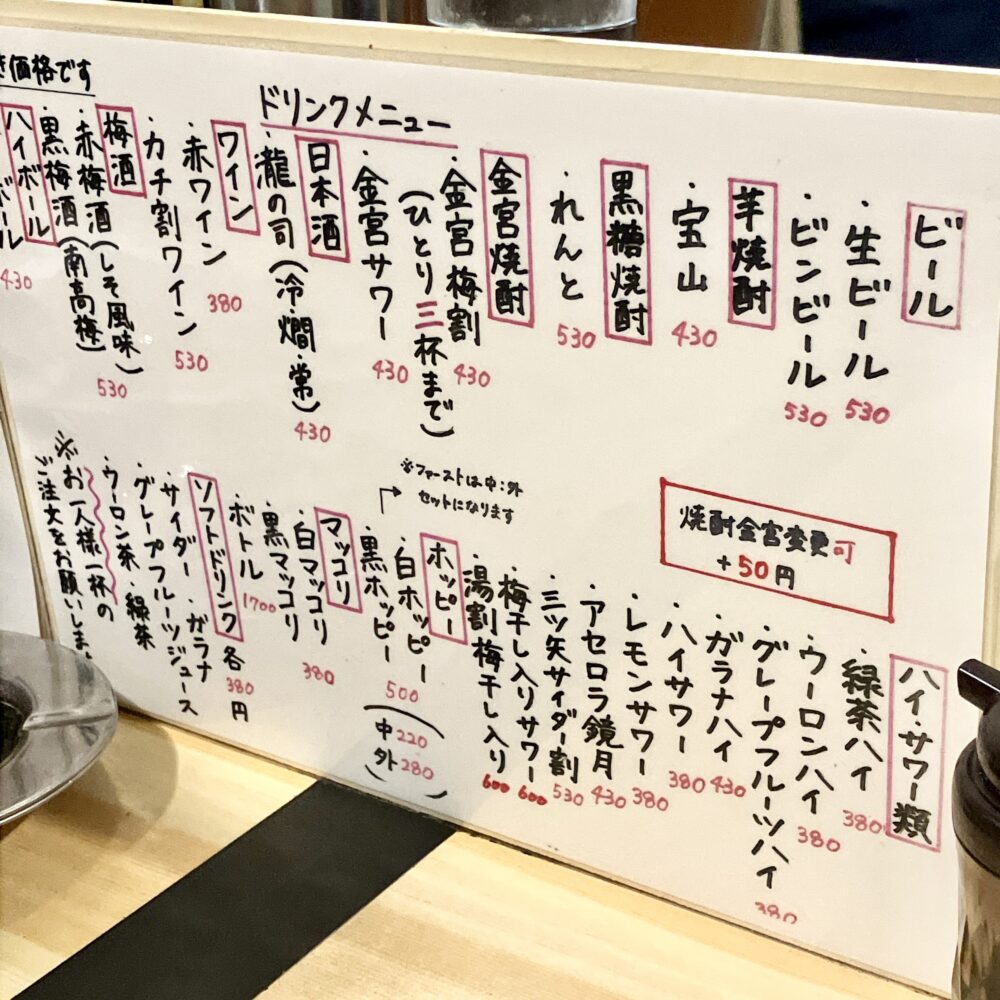 ドリンクメニュー
価格です
ビール
・生ビール 530
・ビンビール 530
芋焼酎
・宝山 430
黒糖焼酎
・れんと 530
金宮焼酎
・金宮梅割 430
(ひとり三杯まで)
・金宮サワー 430
日本酒
・瀧の司(冷・燗・常) 430
ワイン
・赤ワイン 380
・カチ割ワイン 530
梅酒
・赤梅酒(しそ風味)
・黒梅酒(南高梅) 530
ハイボール
ボール 430
焼酎金宮変更可
+50円
ハイ・サワー類
・緑茶ハイ 380
・ウーロンハイ 380
・グレープフルーツハイ 380
・ガラナハイ 430
・ハイサワー 380
・レモンサワー 380
・アセロラ鏡月 430
・三ツ矢サイダー割 530
・梅干し入りサワー 600
・湯割梅干し入り 600
ホッピー
・白ホッピー 500
・黒ホッピー
(中220
外280)
※ファーストは中:外
セットになります
マッコリ
・白マッコリ 380
・黒マッコリ
ボトル 1700
ソフトドリンク 各380円
・サイダー ・ガラナ
・グレープフルーツジュース
・ウーロン茶 ・緑茶
※お一人様一杯の
ご注文をお願いしま